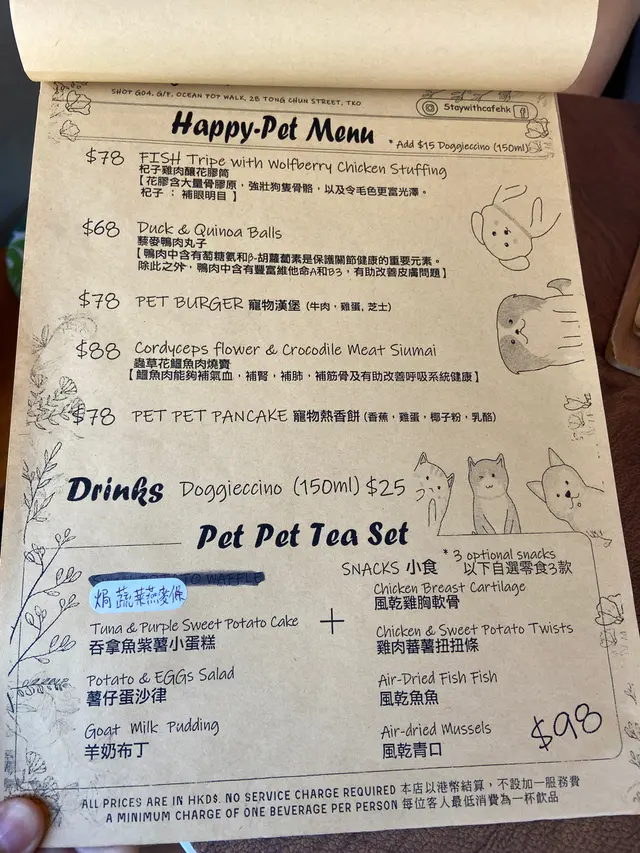 SHOP G04, G/F, OCEAN POP WALK, 28 TONG CHUN STREET, TKO
Staywithcafehk
Happy-Pet Menu
* Add $15 Doggieccino (150ml)
$78 FISH Tripe with Wolfberry Chicken Stuffing
杞子雞肉釀花膠筒
【花膠含大量骨膠原，強壯狗隻骨骼，以及令毛色更富光澤。
杞子：補眼明目】
$68 Duck & Quinoa Balls
藜麥鴨肉丸子
【鴨肉中含有萄糖氨和β-胡蘿蔔素是保護關節健康的重要元素。
除此之外，鴨肉中含有豐富維他命A和B3，有助改善皮膚問題】
$78 PET BURGER 寵物漢堡 (牛肉，雞蛋，芝士)
$88 Cordyceps flower & Crocodile Meat Siumai
蟲草花鱷魚肉燒賣
【鱷魚肉能夠補氣血，補腎，補肺，補筋骨及有助改善呼吸系統健康】
$78 PET PET PANCAKE 寵物熱香餅 (香蕉，雞蛋，椰子粉，乳酪)
Drinks Doggieccino (150ml) $25
Pet Pet Tea Set
WAFFLE
焗蔬菜燕麥條
Tuna & Purple Sweet Potato Cake
吞拿魚紫薯小蛋糕
Potato & EGGs Salad
薯仔蛋沙律
Goat Milk Pudding
羊奶布丁
+
SNACKS 小食 * 3 optional snacks
以下自選零食3款
Chicken Breast Cartilage
風乾雞胸軟骨
Chicken & Sweet Potato Twists
雞肉蕃薯扭扭條
Air-Dried Fish Fish
風乾魚魚
Air-dried Mussels
風乾青口
$98
ALL PRICES ARE IN HKD$. NO SERVICE CHARGE REQUIRED 本店以港幣結算，不設加一服務費
A MINIMUM CHARGE OF ONE BEVERAGE PER PERSON 每位客人最低消費為一杯飲品